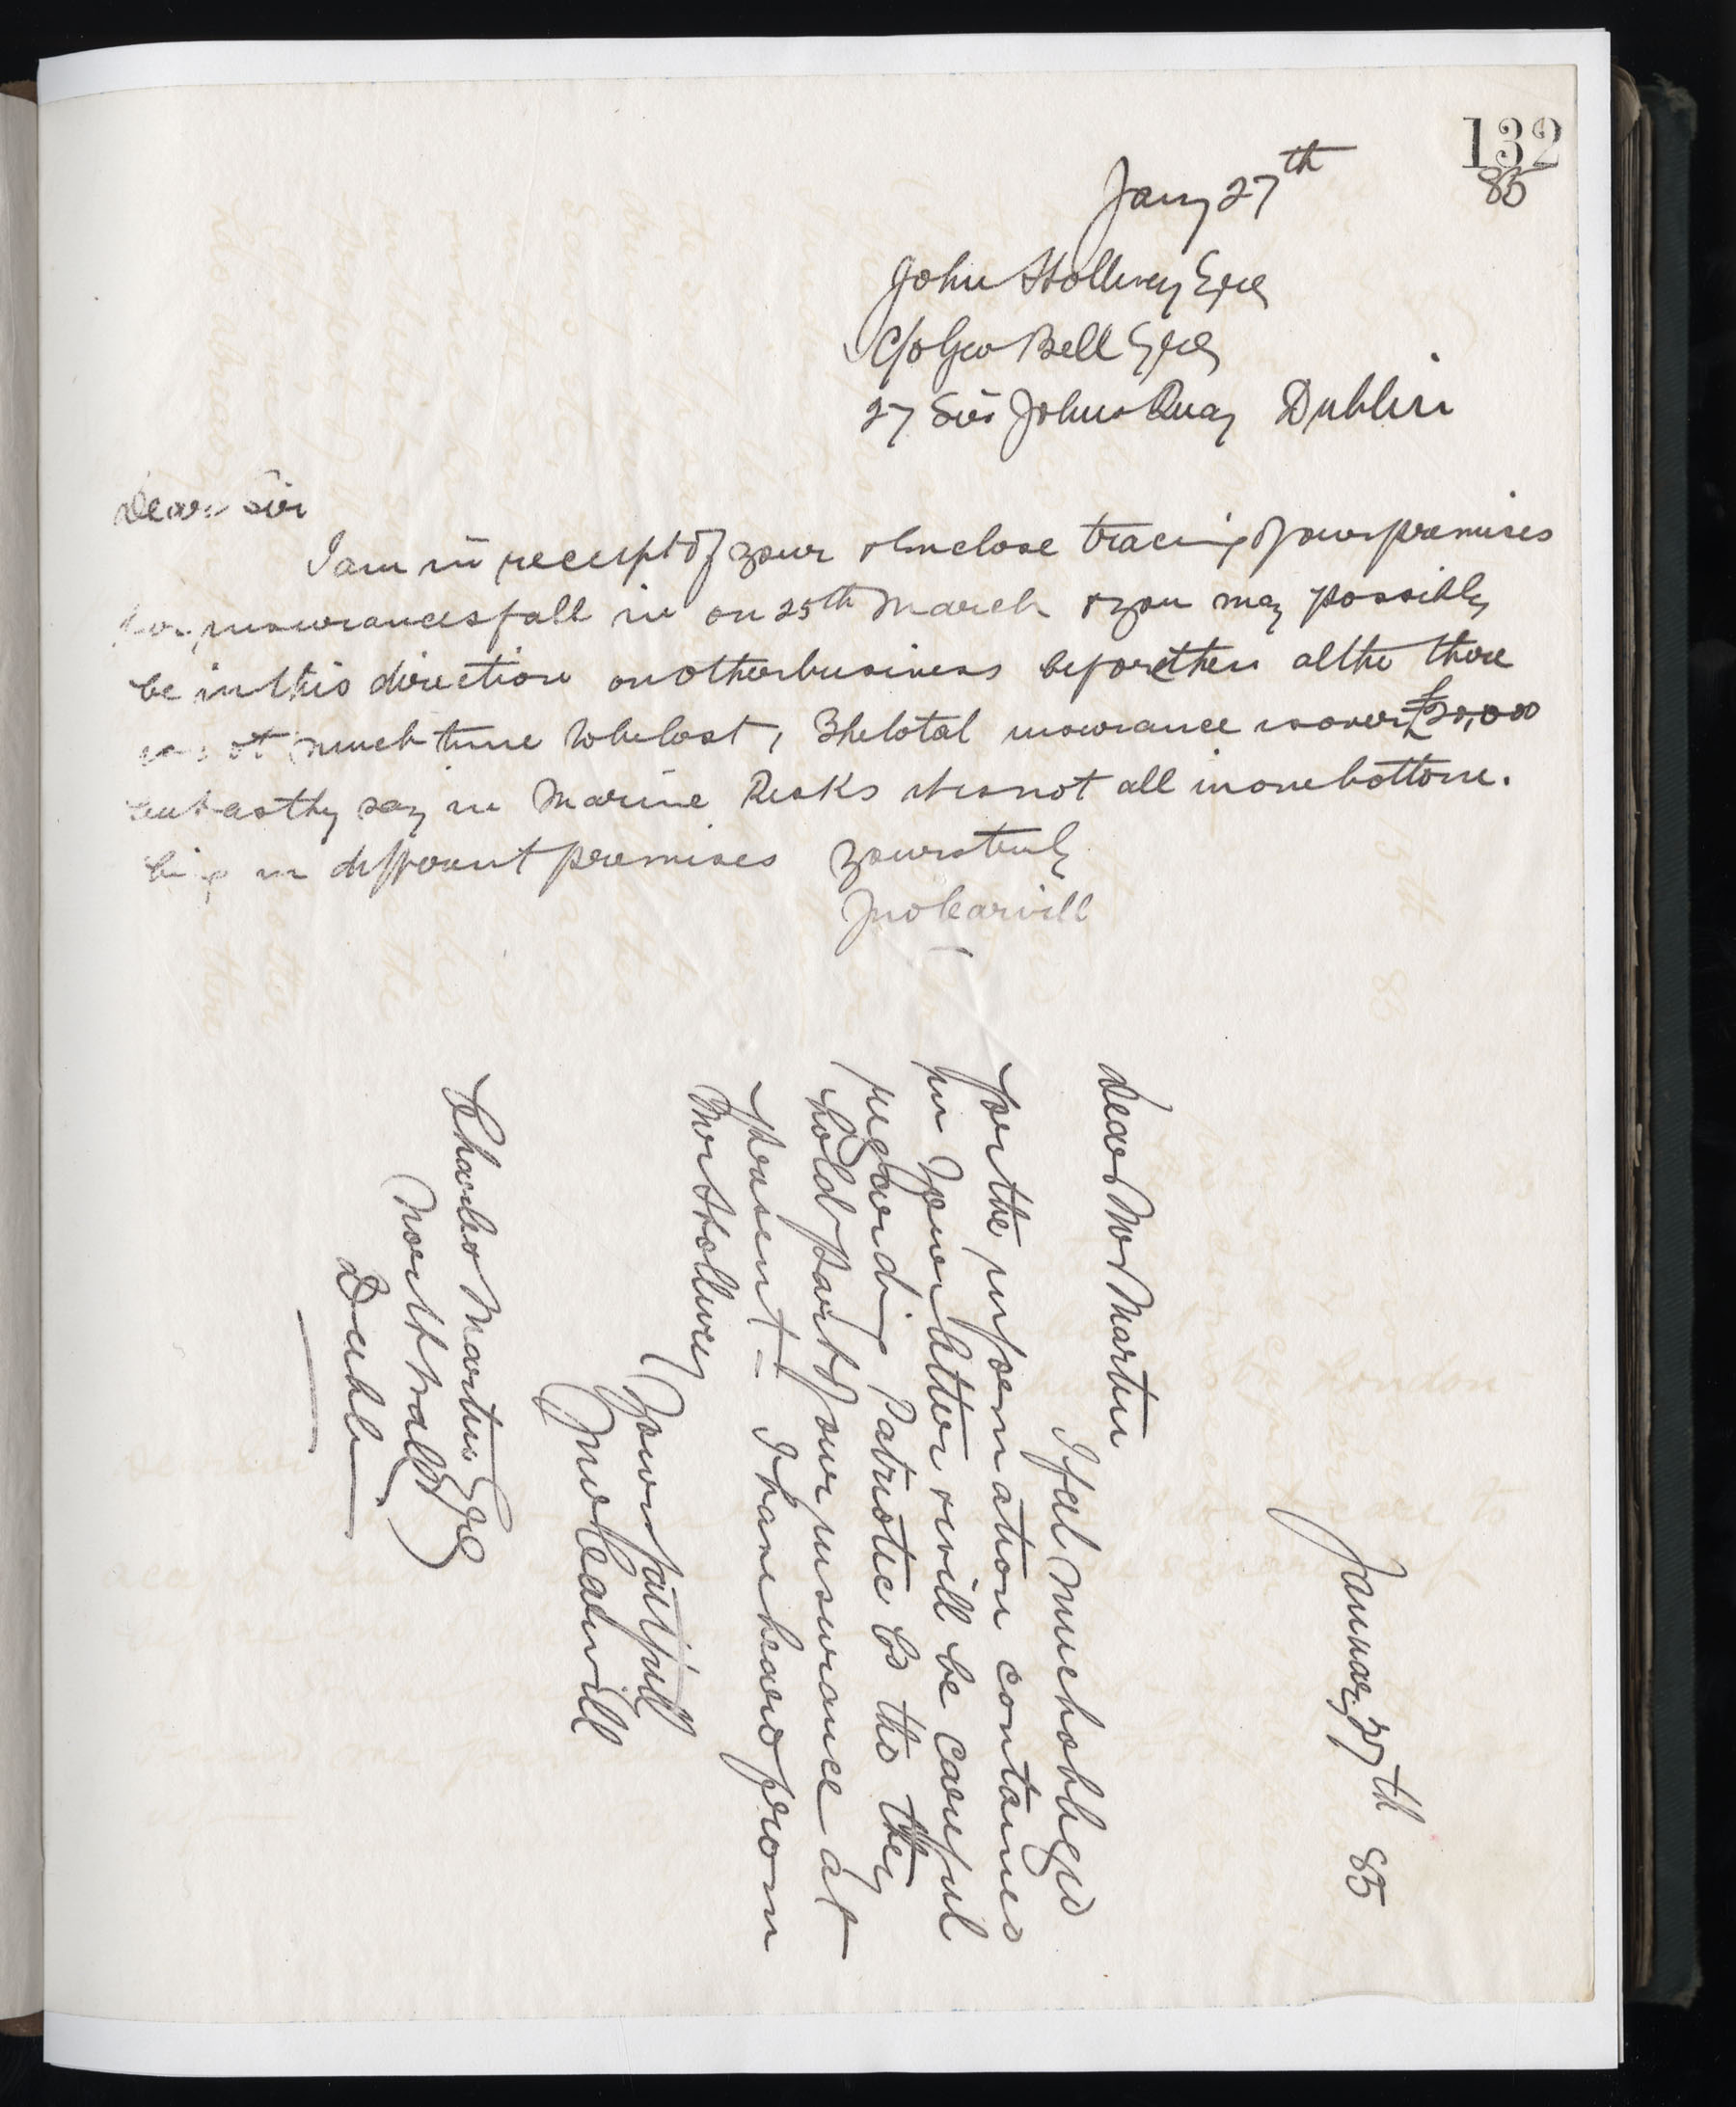 132
Jany 27th 85
John Hollwey Esre
C/o Geo Bell Esre
27 Sir Johns Quay Dublin
Dear Sir
I am in receipt of your & Enclose tracing of our premises
insurances fall in on 25th March & you may possibly
be in this direction on other business before then altho there
is not much time to be lost, The total insurance is over £20,000
but as they say in Marine Risks it is not all in one bottom.
being in different premises yours truly
Jno Carvill
January 27th 85
Dear Mr Martin
I feel much obliged
for the information contained
in your letter & will be careful
regarding Patriotic Co tho they
hold part of our insurance at
present - I have heard from
Mr Hollwey
Yours faithfull
Jno Carvill
Charles Martin Esre
North Wall
Dublin